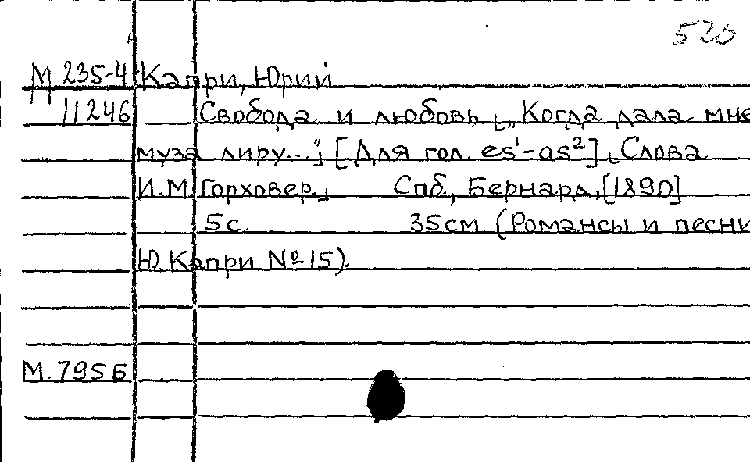 520
М 235-4 Капри, Юрий
11246 Свобода и любовь „Когда дала мне
муза лиру..." [Для гол. es¹-as²] Слова
И.М. Горховер. Спб, Бернард, [1890]
5с. 35см (Романсы и песни
Ю. Капри № 15).
М. 7956